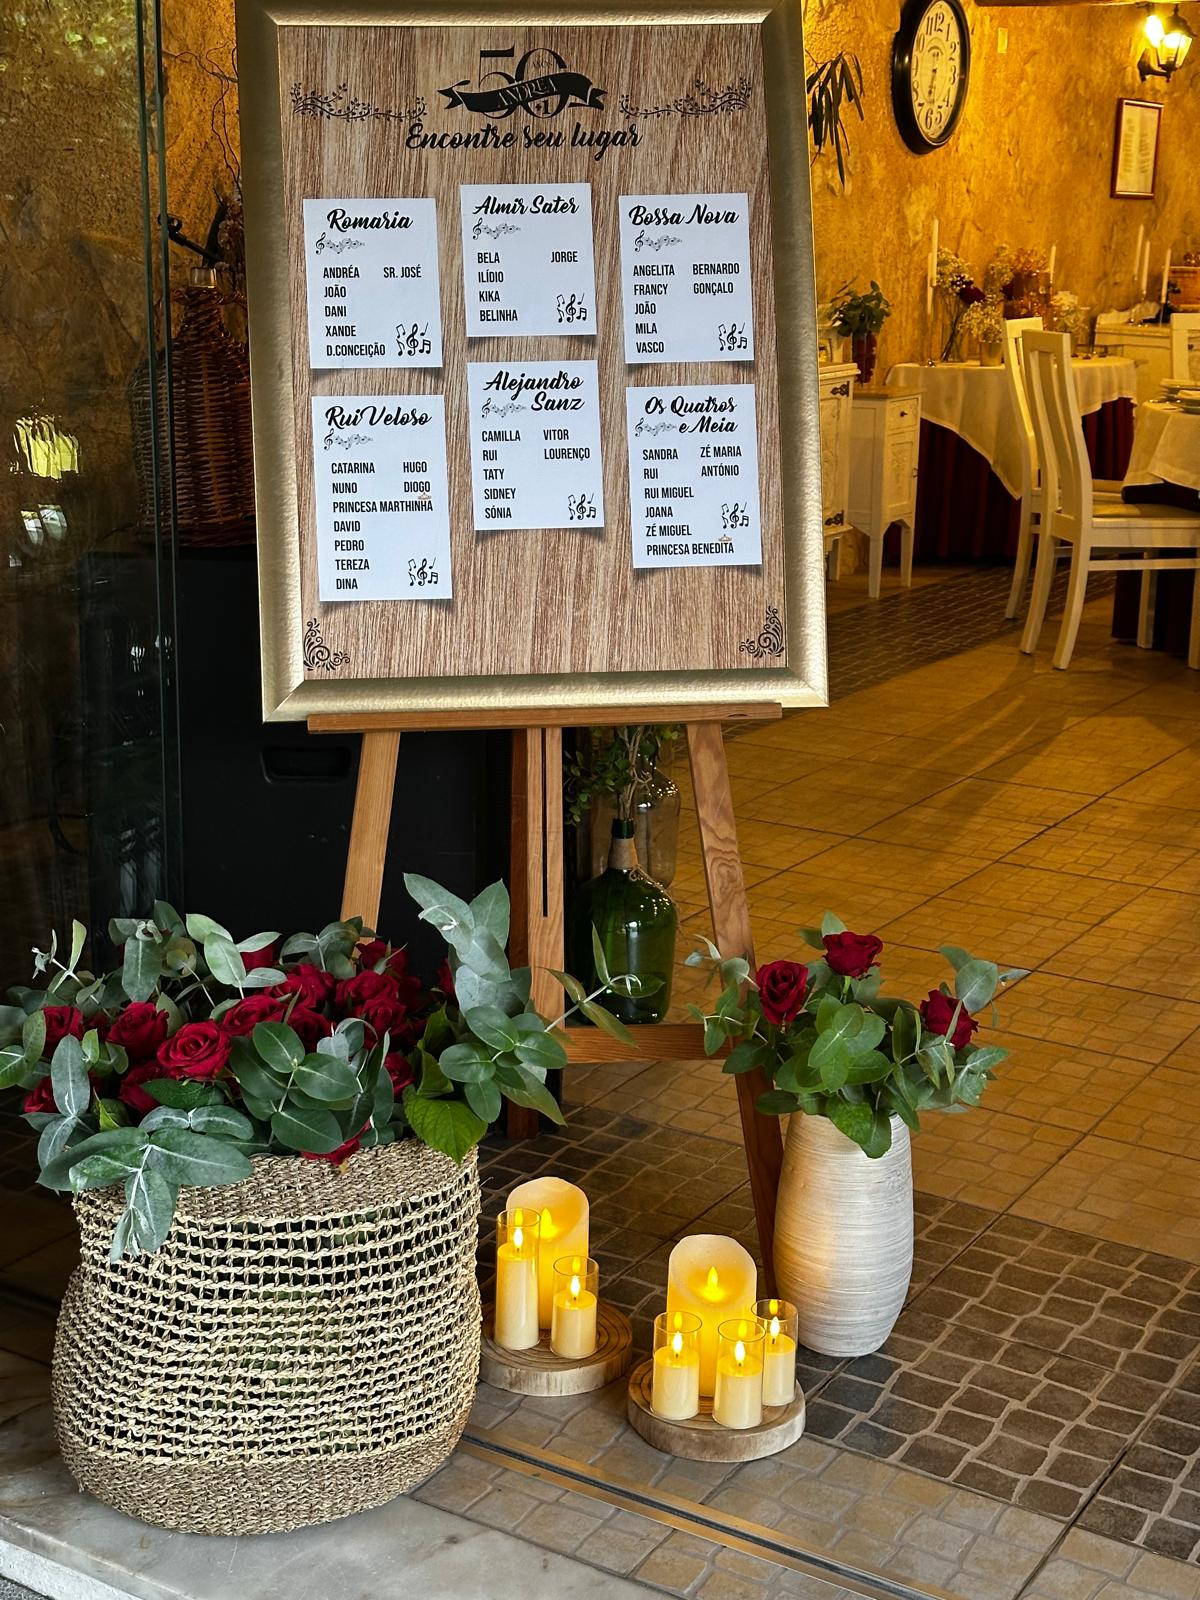 50
ANOS
ANDREA
Encontre seu lugar
Romaria
ANDRÉA SR. JOSÉ
JOÃO
DANI
XANDE
D.CONCEIÇÃO
Almir Sater
BELA JORGE
ILÍDIO
KIKA
BELINHA
Bossa Nova
ANGELITA BERNARDO
FRANCY GONÇALO
JOÃO
MILA
VASCO
Rui Veloso
CATARINA HUGO
NUNO DIOGO
PRINCESA MARTHINHA
DAVID
PEDRO
TEREZA
DINA
Alejandro
Sanz
CAMILLA VITOR
RUI LOURENÇO
TATY
SIDNEY
SÓNIA
Os Quatros
e Meia
SANDRA ZÉ MARIA
RUI ANTÓNIO
RUI MIGUEL
JOANA
ZÉ MIGUEL
PRINCESA BENEDITA